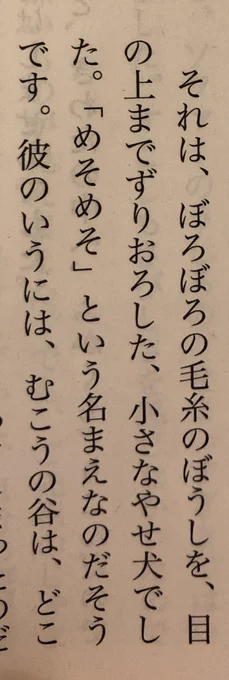 それは、ぼろぼろの毛糸のぼうしを、目
の上までずりおろした、小さなやせ犬でし
た。「めそめそ」という名まえなのだそう
です。彼のいうには、むこうの谷は、どこ